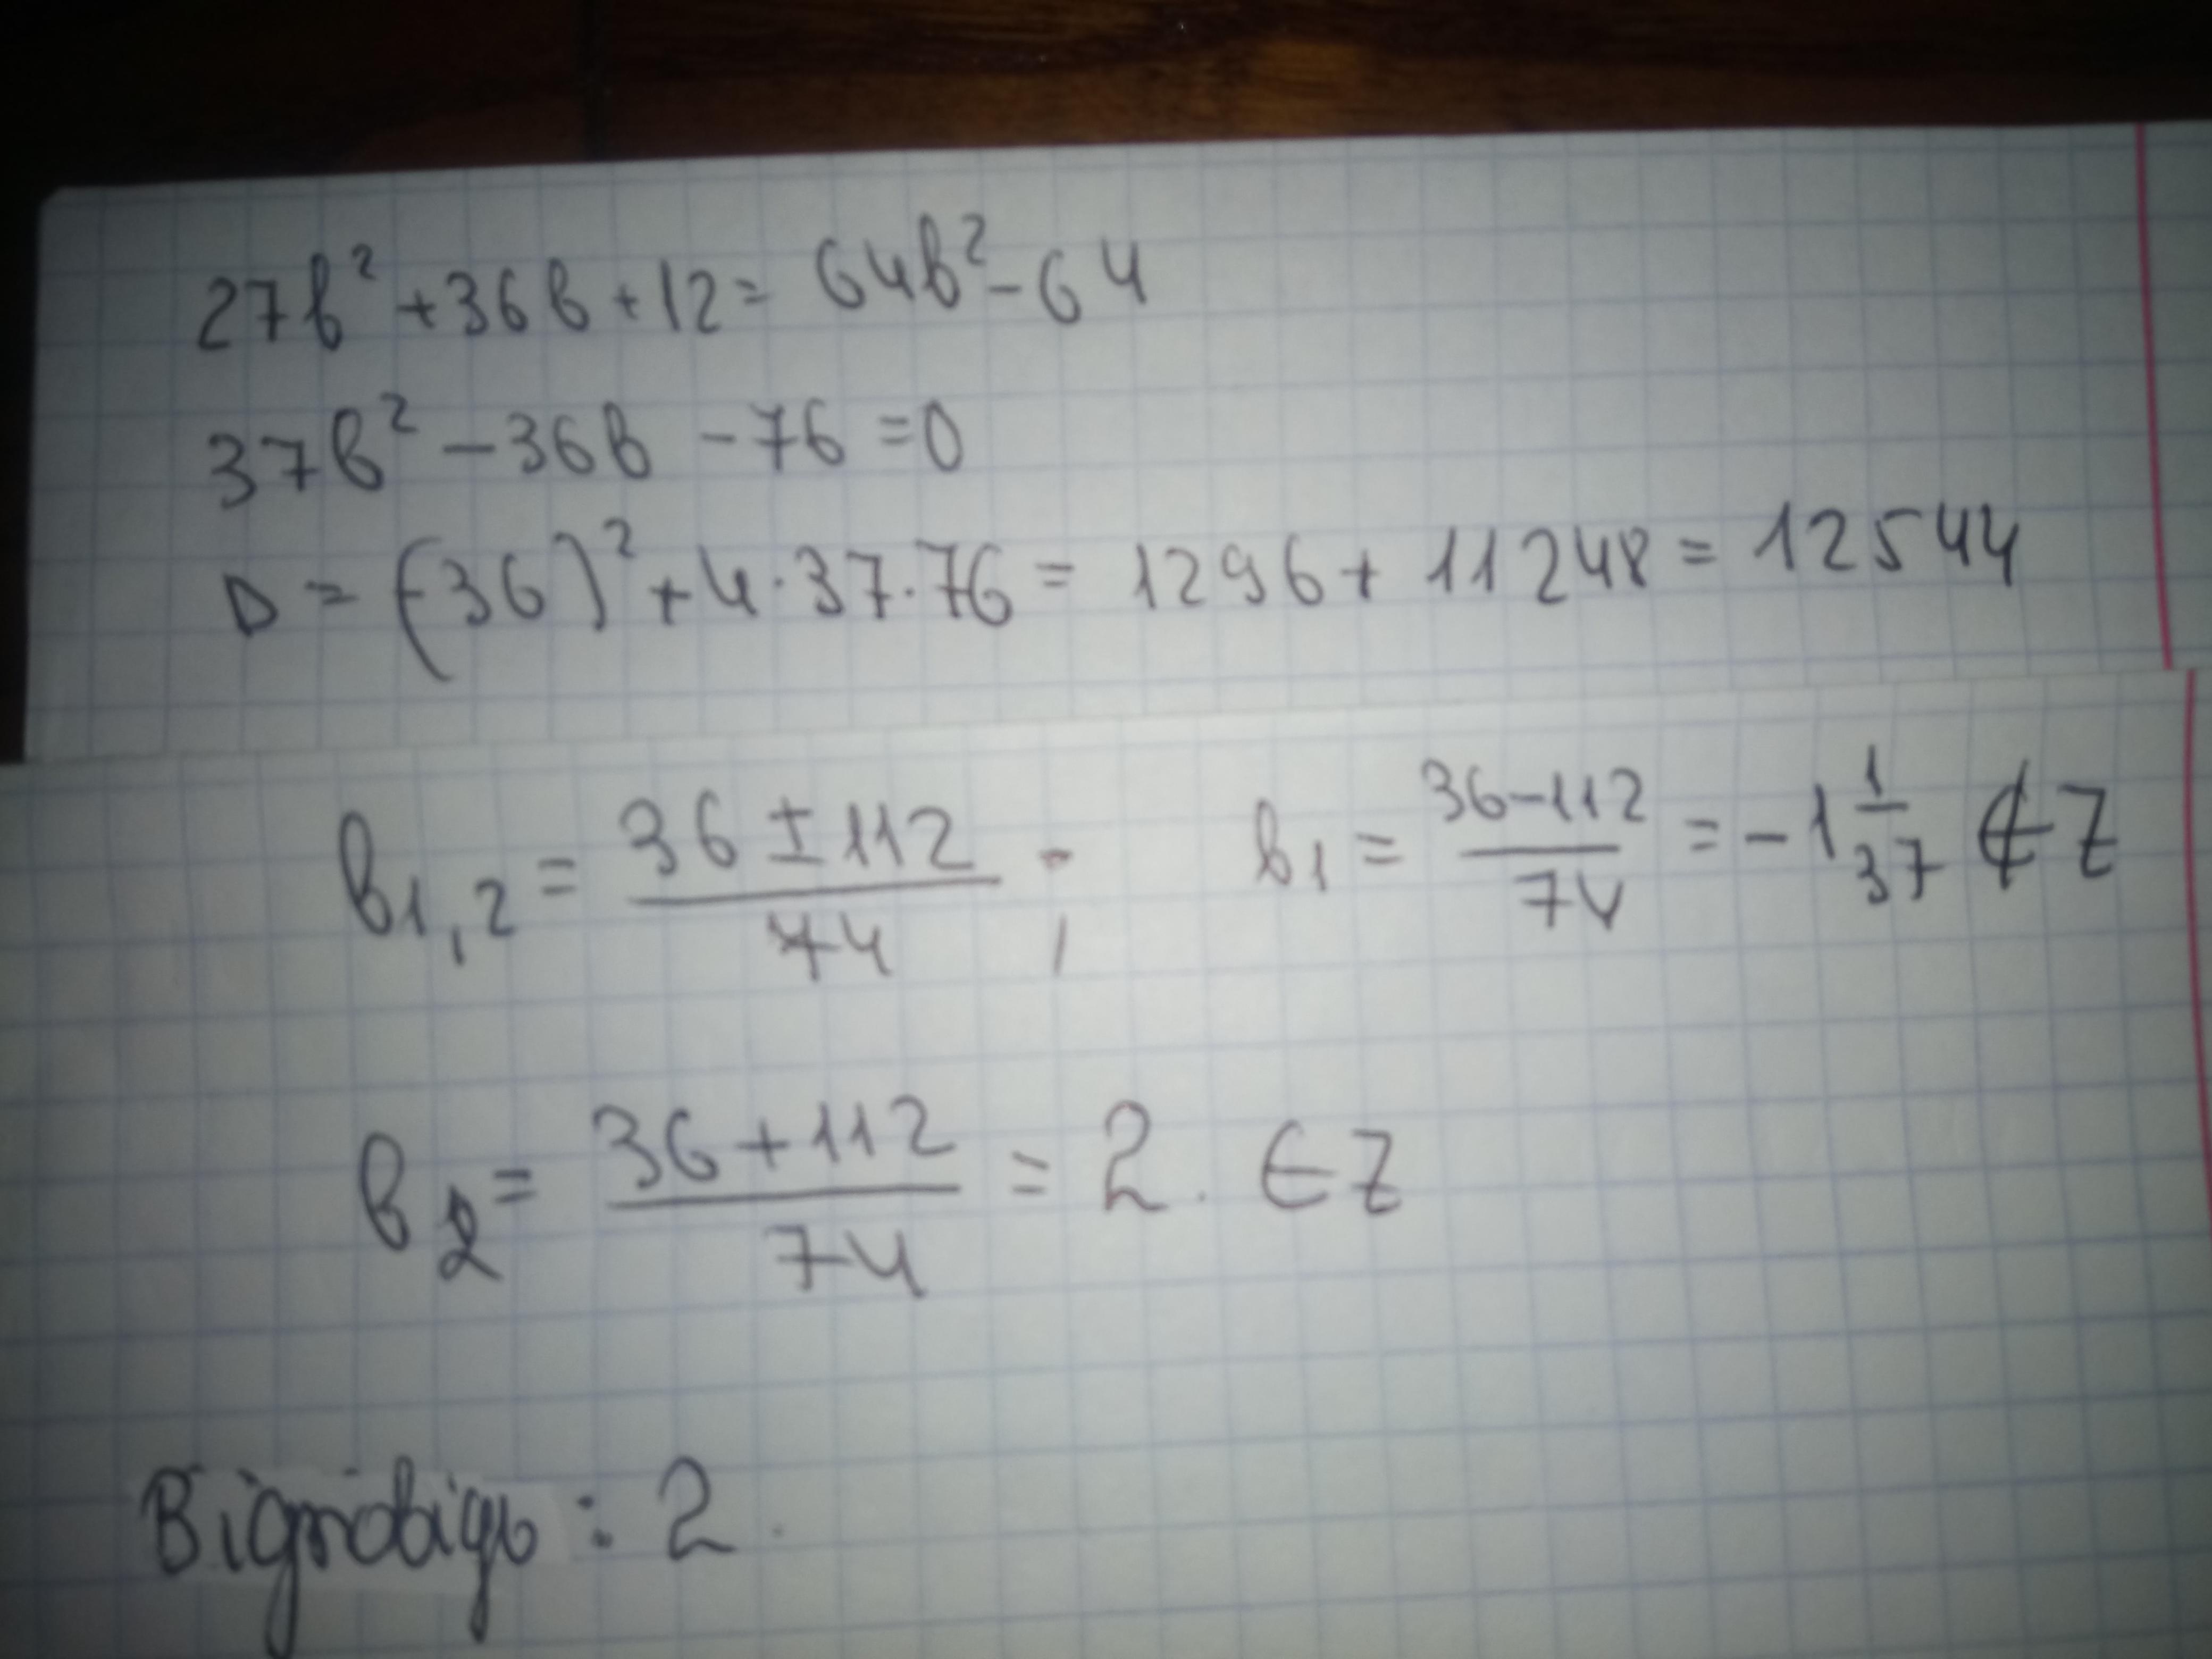 27в² + 36в + 12 = 64в² - 64
37в² - 36в - 76 = 0
D = (-36)² + 4·37·76 = 1296 + 11248 = 12544
в₁,₂ = (36 ± 112)/74 ; в₁ = (36-112)/74 = -1 1/37 ∉ Z
в₂ = (36+112)/74 = 2. ∈ Z
Відповідь: 2.